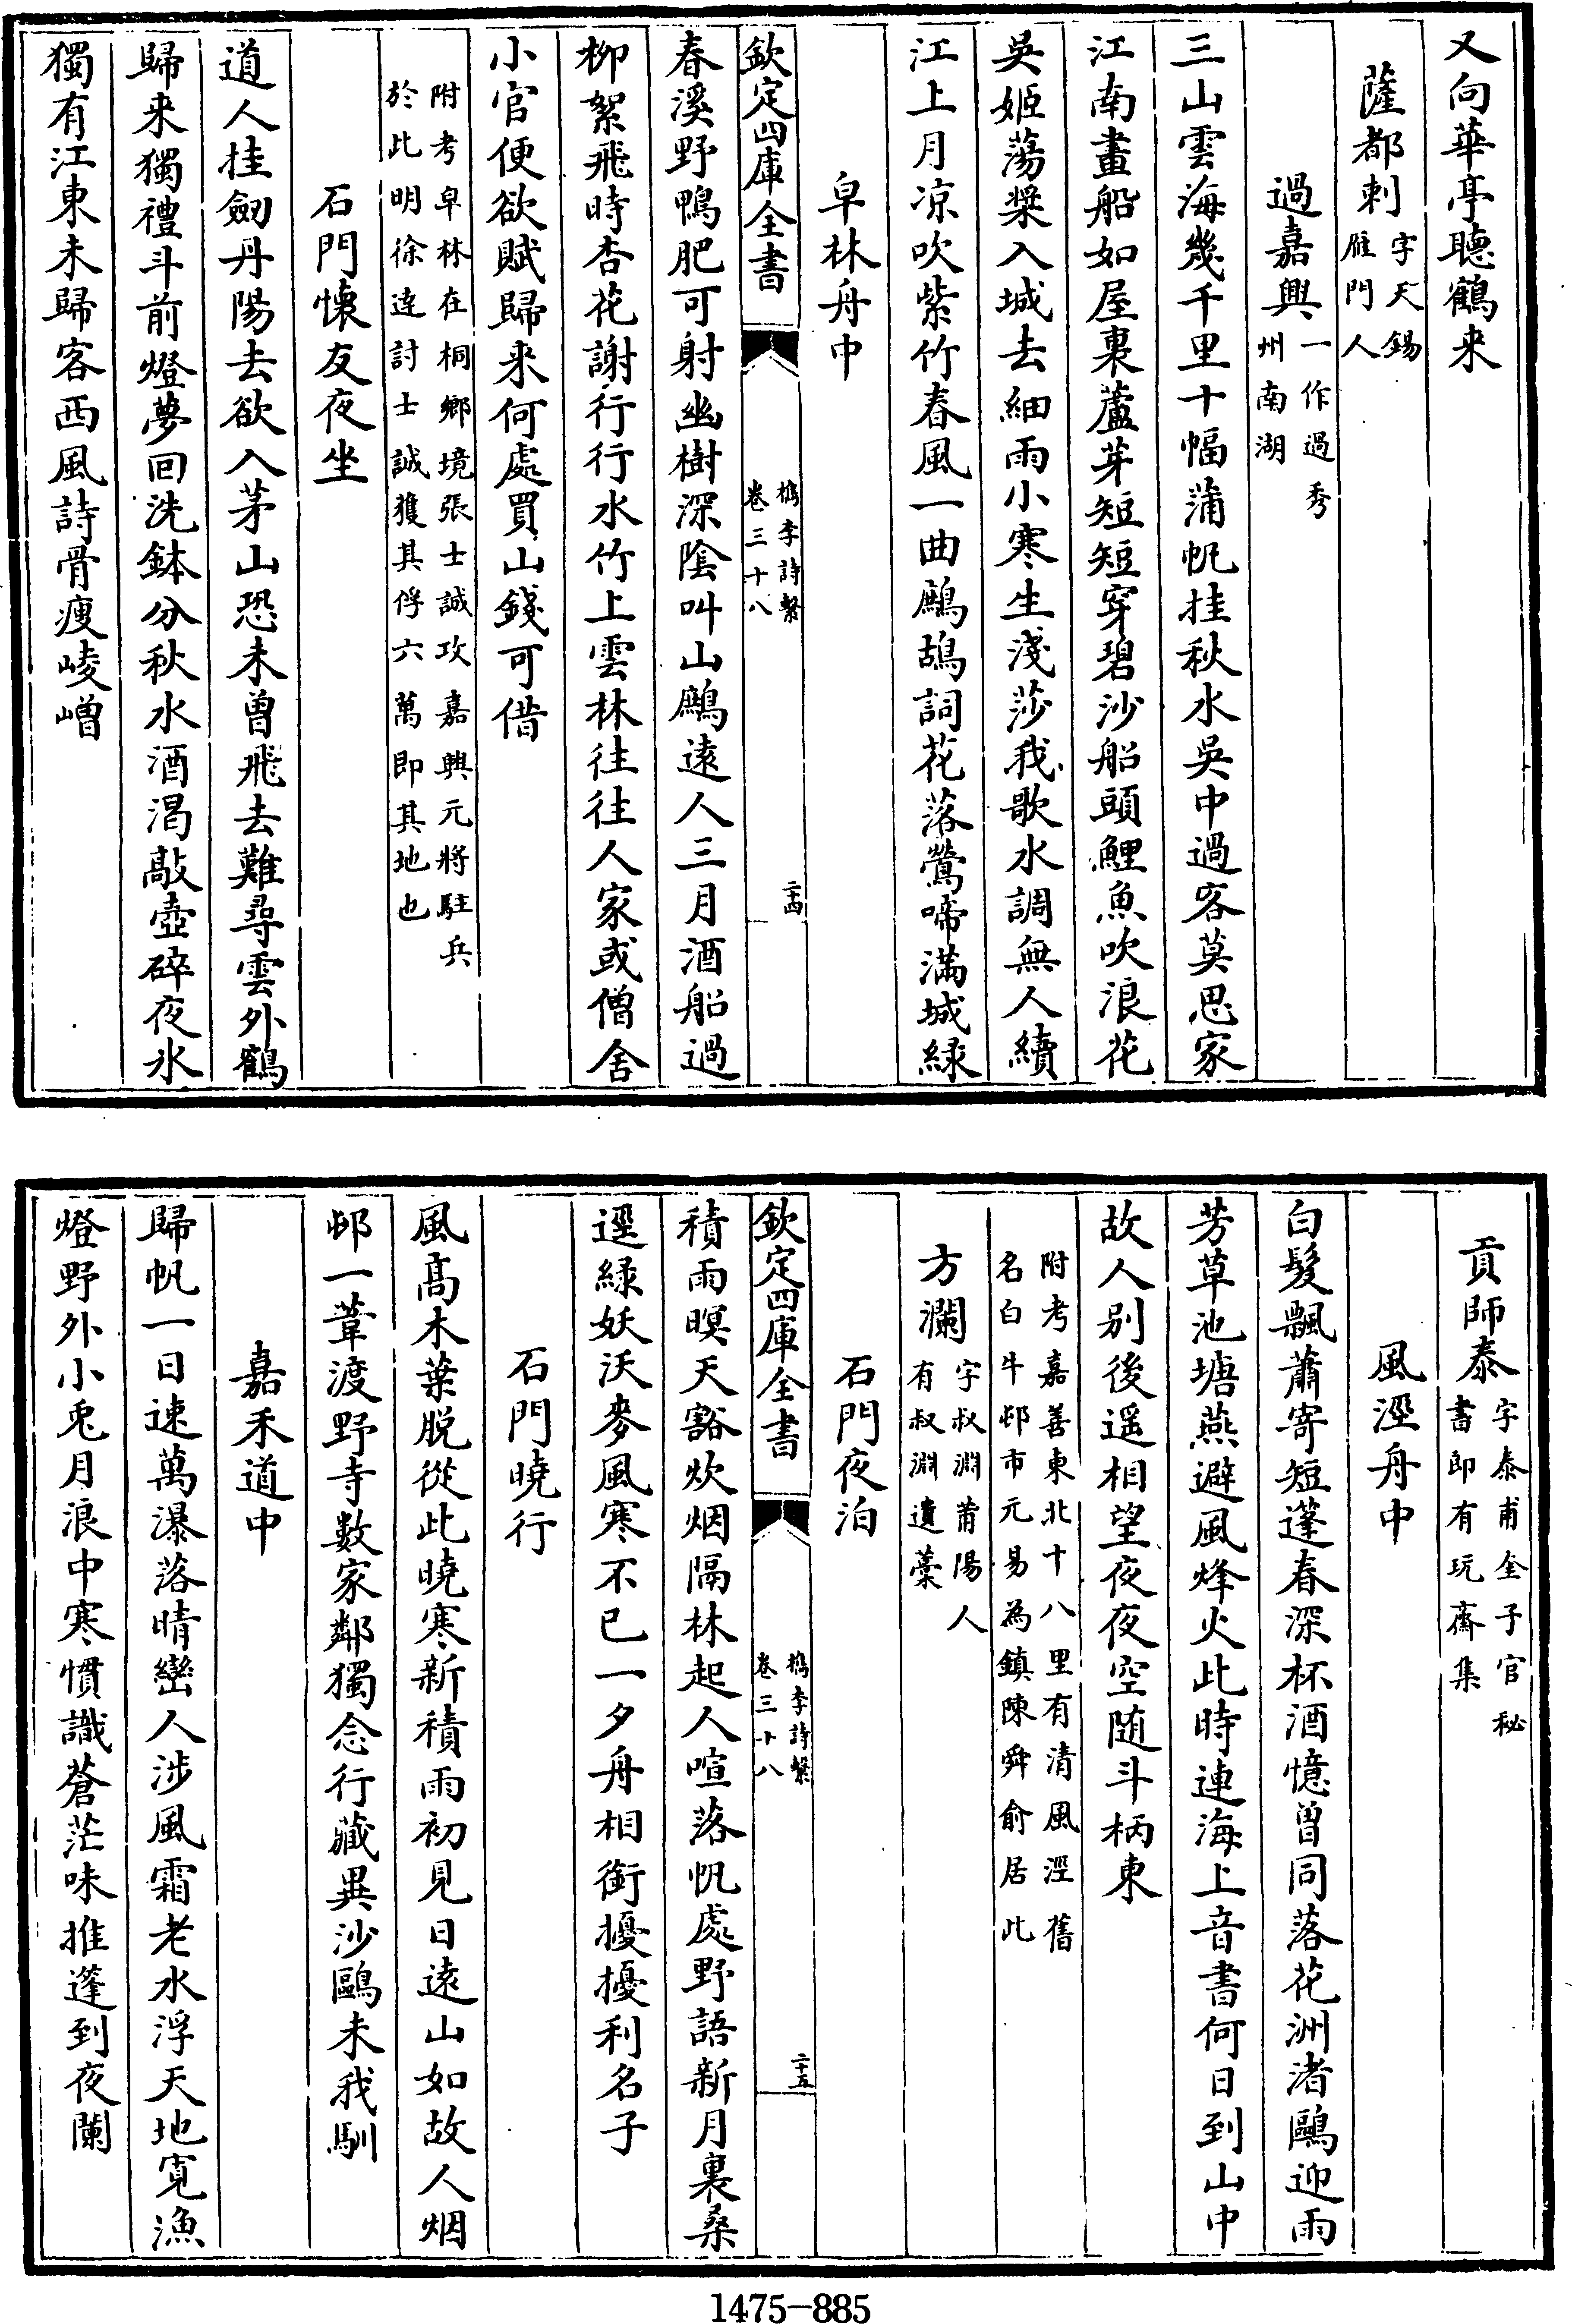 又向華亭聽鶴来
薩都剌字天錫
雁門人
過嘉興一作過秀
州南湖
三山雲海幾千里十幅蒲帆挂秋水吳中過客莫思家
江南畫船如屋裏蘆芽短短穿碧沙船頭鯉魚吹浪花
吳姬蕩槳入城去細雨小寒生淺莎我歌水調無人續
江上月凉吹紫竹春風一曲鷓鴣詞花落鶯啼滿城緑
皁林舟中
欽定四庫全書
檇李詩繫
卷三十八
二十四
春溪野鴨肥可射幽樹深陰叫山鷓遠人三月酒船過
柳絮飛時杏花謝行行水竹上雲林往往人家或僧舍
小官便欲賦歸来何處買山錢可借
附考皁林在桐鄉境張士誠攻嘉興元將駐兵
於此明徐達討士誠獲其俘六萬即其地也
石門懐友夜坐
道人挂劒丹陽去欲入茅山恐未曾飛去難尋雲外鶴
歸来獨禮斗前燈夢回洗鉢分秋水酒渴敲壺碎夜氷
獨有江東未歸客西風詩骨瘦崚嶒
貢師泰字泰甫奎子官秘
書郎有玩齋集
風涇舟中
白髮飄蕭寄短蓬春深杯酒憶曽同落花洲渚鷗迎雨
芳草池塘燕避風烽火此時連海上音書何日到山中
故人别後遥相望夜夜空随斗柄東
附考嘉善東北十八里有清風涇舊
名白牛邨市元易為鎮陳舜俞居此
方瀾字叔淵莆陽人
有叔淵遺藁
石門夜泊
欽定四庫全書
檇李詩繫
卷三十八
二十五
積雨暝天豁炊烟隔林起人喧落帆處野語新月裏桑
遝緑妖沃麥風寒不已一夕舟相銜擾擾利名子
石門曉行
風髙木葉脱從此曉寒新積雨初見日遠山如故人烟
邨一葦渡野寺數家鄰獨念行藏異沙鷗未我馴
嘉禾道中
歸帆一日速萬瀑落晴巒人涉風霜老水浮天地寛漁
燈野外小兎月浪中寒慣識蒼茫味推蓬到夜闌
1475-885